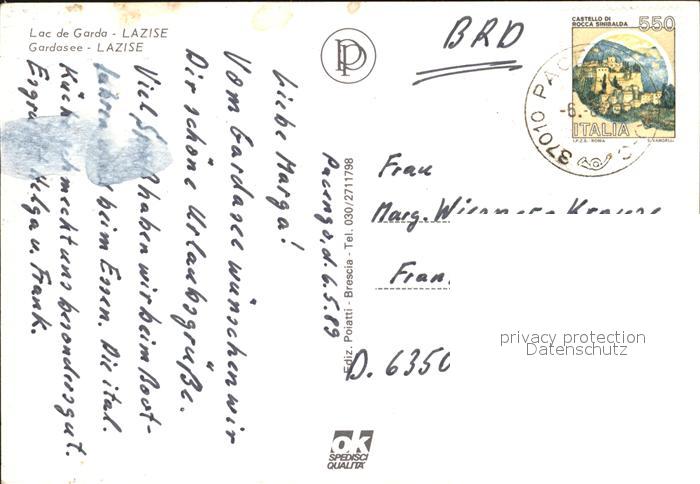 Lac de Garda - LAZISE
Gardasee - LAZISE
Pacengo, d. 6.5.89
Liebe Marga!
Vom Gardasee wünschen wir
Dir schöne Urlaubsgrüße.
Viel Spaß haben wir beim Boot-
fahren und beim Essen. Die ital.
Küche schmeckt uns besonders gut.
Es grüßen Helga u. Frank.
Ediz. Poiatti - Brescia - Tel. 030/2711798
PP
BRD
CASTELLO DI
ROCCA SINIBALDA
550
ITALIA
I.P.Z.S. - ROMA
37010 PAC
-6.-
Frau
Marg.
Fran
D. 6350
privacy protection
Datenschutz
ok
SPEDISCI
QUALITA'